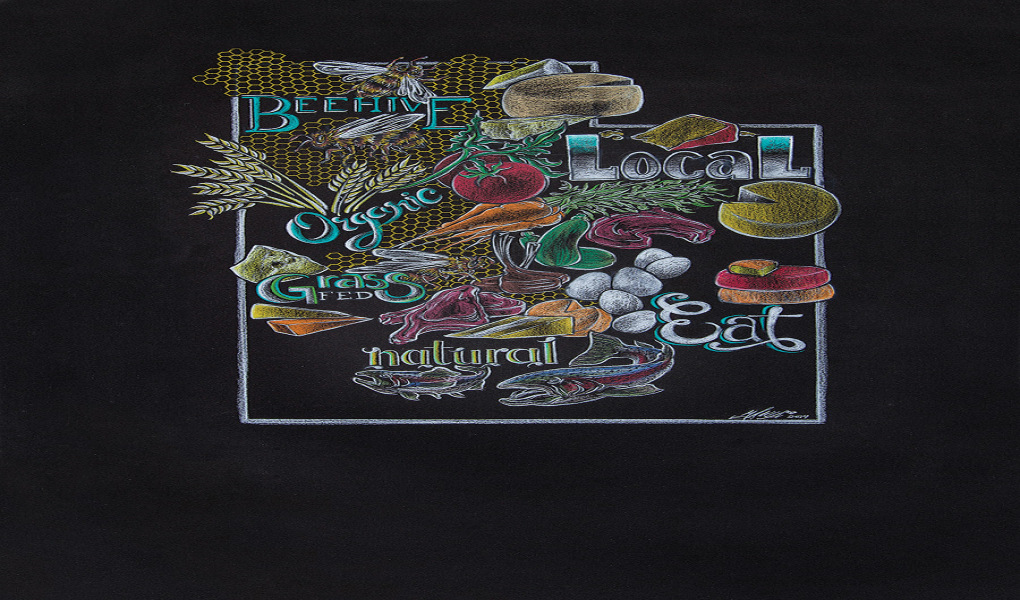 BEEHIVE
Local
Organic
Grass
FED
Eat
natural